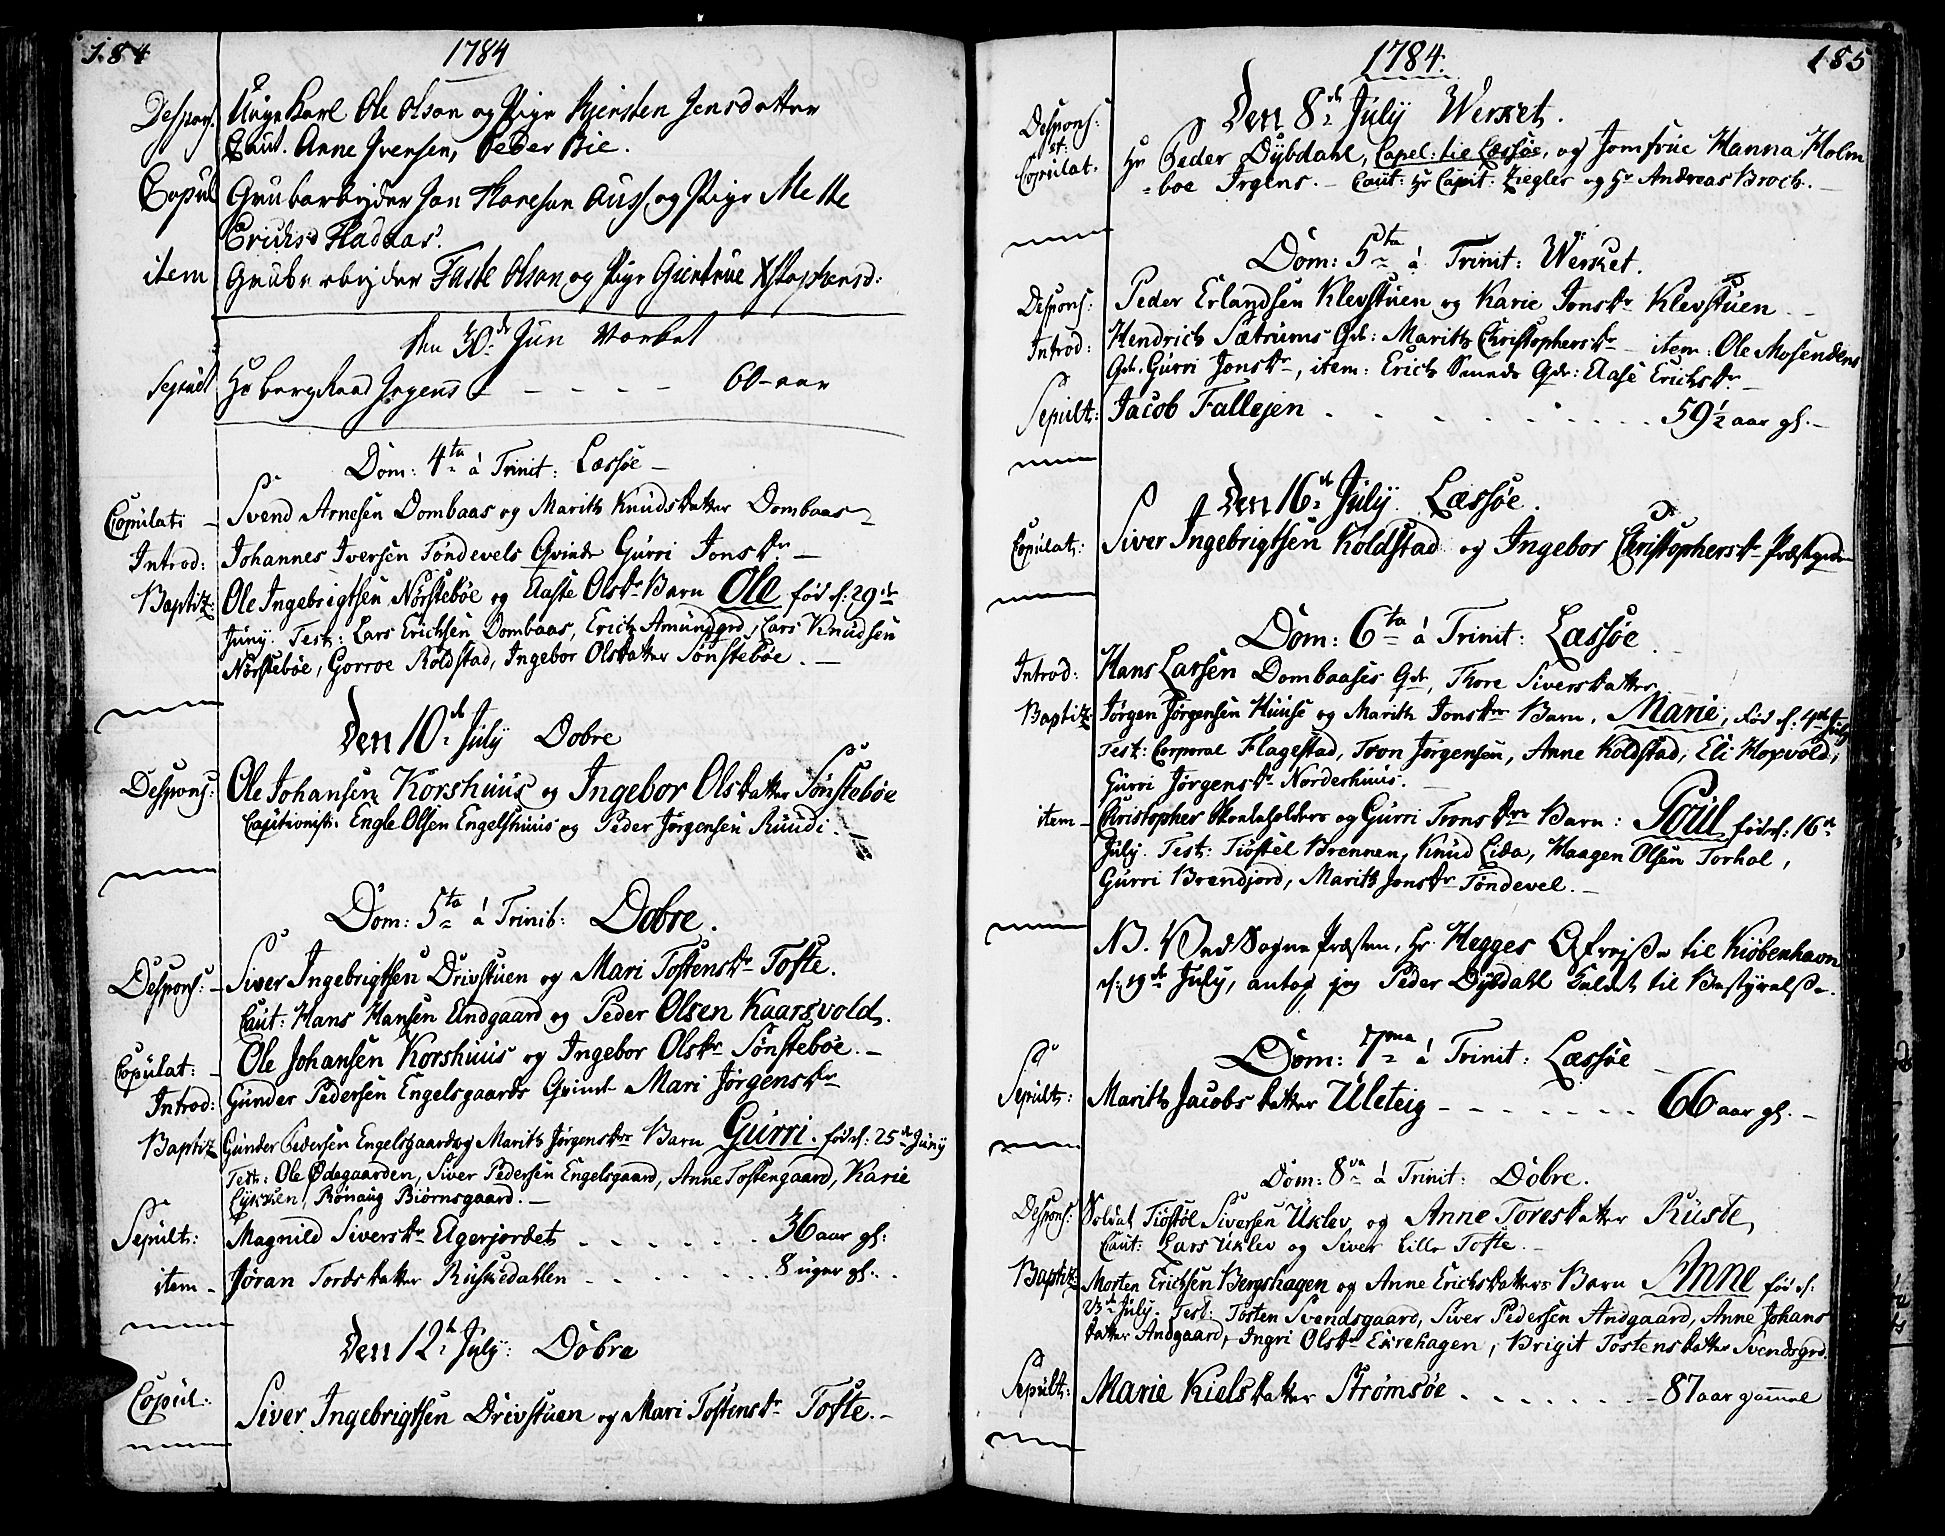 184
1784
Despons. Unge Karl Ole Olsøn og Pige Kjersten Jensdatter
Caut. Anne Ivensen, Peder Bie.
Copul Grubarbejder Jon Horesøn Auss og Pige Mette
Erichsd Fladaas.
item Grubarbejder Faste Olsøn og Pige Giertrue Xstophersd:
Den 30de Jun Verket
Sepult Hr bergRaad Irgens - - - - 60 - aar
Dom: 4ta á Trinit: Læssøe
Copulati - Svend Arnesen Dombaas og Marith Knudsdatter Dombaas
Introd: Johannes Iversen Tøndevels Qvinde Gurri Jonsdr
Baptiz: Ole Ingebrigtsen Nørstebøe og Aaste Olsdr Barn Ole fød d: 29de
Juny. Test: Lars Erichsen Dombaas, Erich Amundgrd, Lars Knudsen
Nørstebøe, Gorroe Koldstad, Ingebor Olsdatter Sønstebøe.
Den 10de July Dovre
Despons: Ole Johansen Korshuus og Ingebor Olsdatter Sønstebøe
Cautionist: Engle Olsen Engelshuus og Peder Jørgensen Ruudi.
Dom: 5ta á Trinit: Dovre.
Despons: - Siver Ingebrigtsen Drivstuen og Mari Tostensdr Tofte.
Caut: Hans Hansen Endgaard og Peder Olsen Kaarsvold.
Copulat: - Ole Johansen Korshuus og Ingebor Olsdr Sønstebøe.
Introd: Gunder Pedersen Engelsgaards Qvinde Mari Jørgensdr
Baptiz Gunder Pedersen Engelsgaard og Marith Jørgensdrs Barn Gurri. fød d: 25de Juny
Test: Ole Ødegaarden, Siver Pedersen Engelsgaard, Anne Tostengaard, Karie
Lykkien, Rønaug Biørnsgaard.
Sepult: Magnild Siversdr Elgerjordet - - - 36 aar gl:
item - Jøran Tordsdatter Ruskedahlen - - - 8 uger gl:
Den 12te July: Dovre
Copul: Siver Ingebrigtsen Drivstuen og Mari Tostensdr Tofte.
185
1784.
Den 8de July Werket.
Despons: et: Copulat. Hr Peder Dybdahl, Capel: til Læssøe, og Jomfrue Hanna Holm
=boe Irgens. - Caut: Hr Capit: Ziegler og Hr Andreas Broch.
Dom: 5ta á Trinit: Werket.
Despons: Peder Erlandsen Klevstuen og Karie Jonsdr Klevstuen
Introd: Hendrich Sætrums Qv: Marith Christophersdr - item: Ole Mosendens
Qv. Gurri Jonsdr, item: Erich Smeds Qv: Aase Erichsdr.
Sepult: Jacob Fallesen - - - 59 1/2 aar gl.
Den 16de July. Læssøe.
Copulat: Siver Ingebrigtsen Koldstad og Ingebor Christophersdr Præstgrd
Dom: 6ta á Trinit: Læssøe.
Introd: Hans Larsen Dombaases Qv, Thore Siversdatter
Baptiz: Jørgen Jørgensen Huuse og Marith Jonsdrs Barn. Marie, fød d: 4de July
Test: Corporal Flagestad, Tron Jørgensen, Anne Koldstad, Eli Hoxvold,
Gurri Jørgensdr Norderhuus.
item - Christopher Skoleholders og Gurri Tronsdrs Barn: Poul fød d: 16de
July. Test: Tiøstel Brennen, Knud Lida, Haagen Olsen Torhol,
Gurri Brendjord, Marith Jonsdr Tøndevel.
NB. Ved Sogne Præsten, Hr. Hegges Afreise til Kiøbenhavn
d: 19de July, antog jeg Peder Dybdahl Kaldet til Bestyrelse.
Dom: 7ma á Trinit: Læssøe
Sepult: Marith Jacobsdatter Uleteig - - - 66 aar gl.
Dom: 8va á Trinit: Dovre.
Despons: Soldat Tiøstøl Siversen Uklev og Anne Toresdatter Ruste,
Caut: Lars Uklev og Siver Lille Tofte.
Baptiz: Morten Erichsen Bergshagen og Anne Erichsdatters Barn Anne fød d:
23de July. Test: Tosten Svendsgaard, Siver Pedersen Andgaard, Anne Johans
datter Andgaard, Ingri Olsdr Exrehagen, Brigit Tostensdatter Svendsgrd.
Sepult: Marie Kielsdatter Strømsøe - - - 87 aar gammel